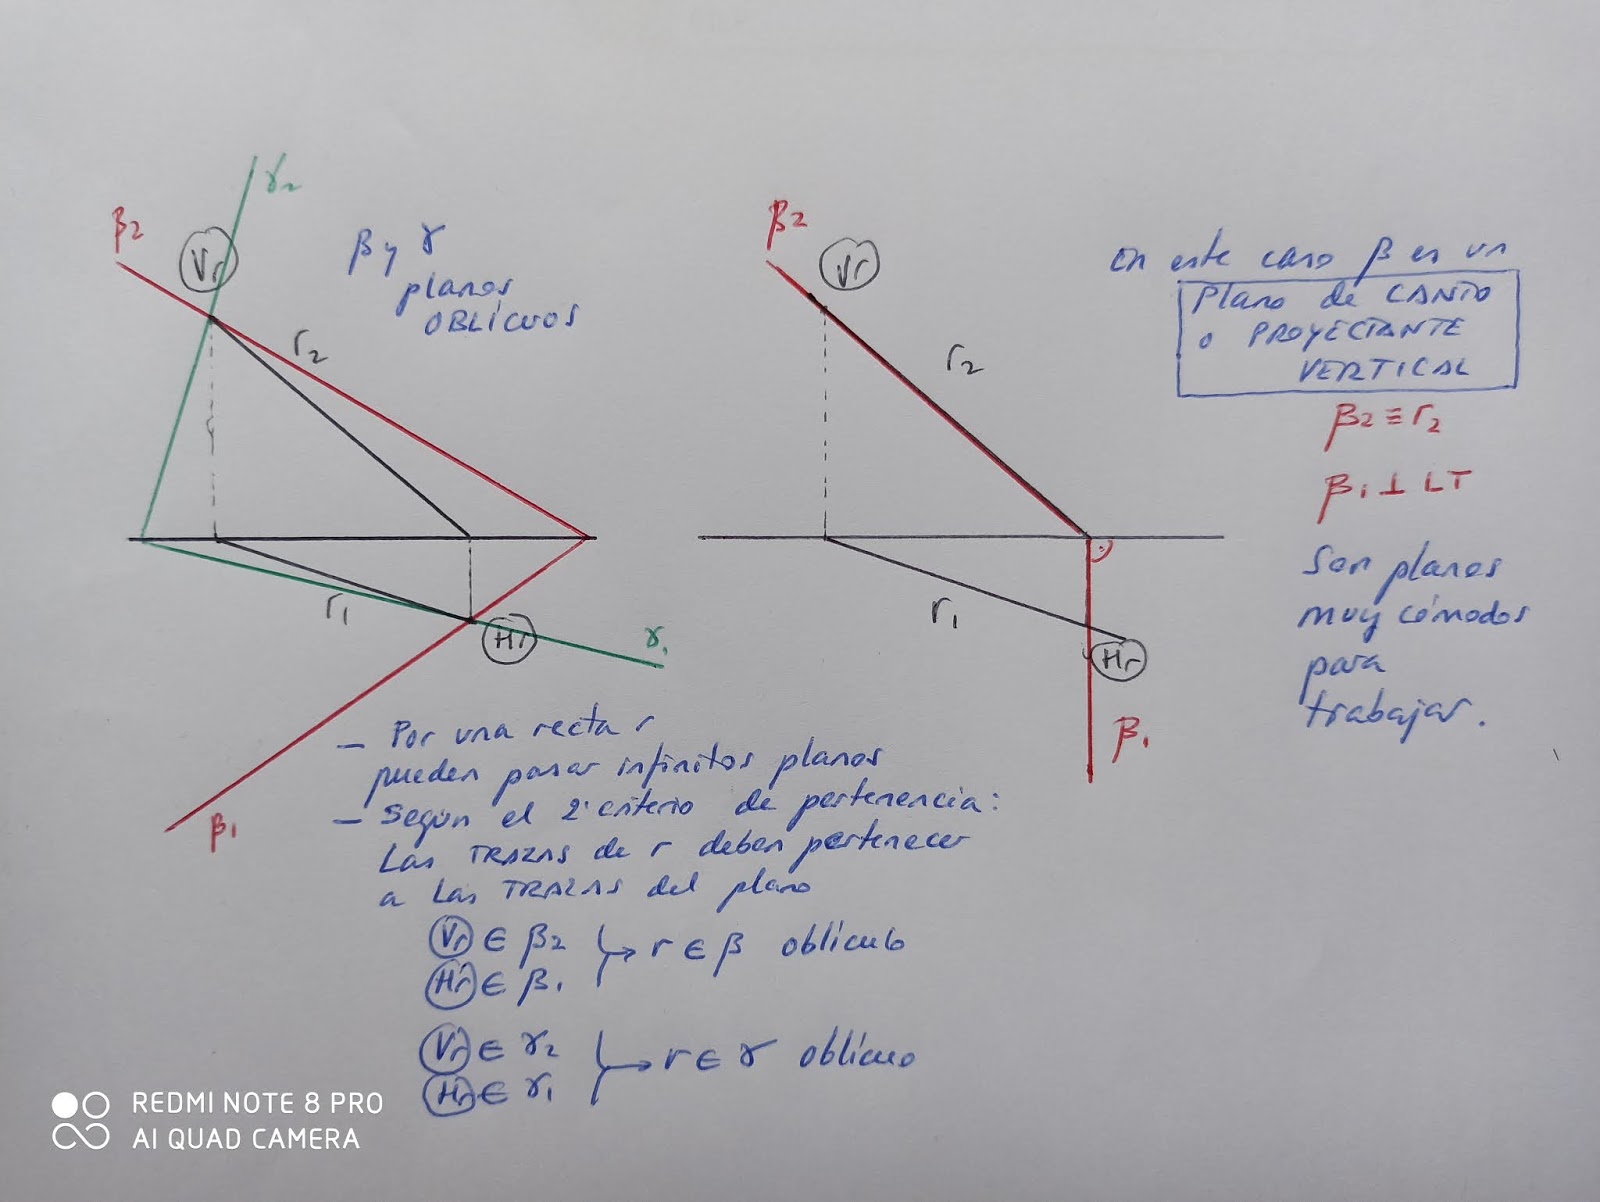 γ2
β2
Vr
β y γ
planos
OBLÍCUOS
r2
r1
Hr
γ1
β1
β2
Vr
r2
r1
Hr
β1
En este caso β es un
Plano de CANTO
o PROYECTANTE
VERTICAL
β2 ≡ r2
β1 ⊥ LT
Son planos
muy cómodos
para
trabajar.
- Por una recta r
pueden pasar infinitos planos
- Según el 2º criterio de pertenencia:
Las TRAZAS de r deben pertenecer
a las TRAZAS del plano
Vr ∈ β2
Hr ∈ β1
→ r ∈ β oblícuo
Vr ∈ γ2
Hr ∈ γ1
→ r ∈ γ oblícuo
REDMI NOTE 8 PRO
AI QUAD CAMERA